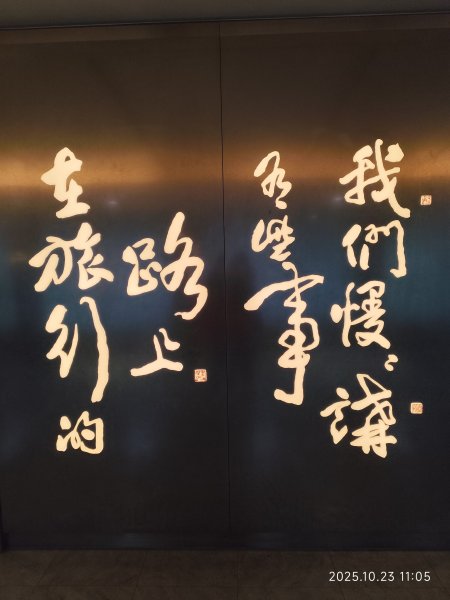 在旅行的
路上
有些事
我們慢慢講
2025.10.23 11:05